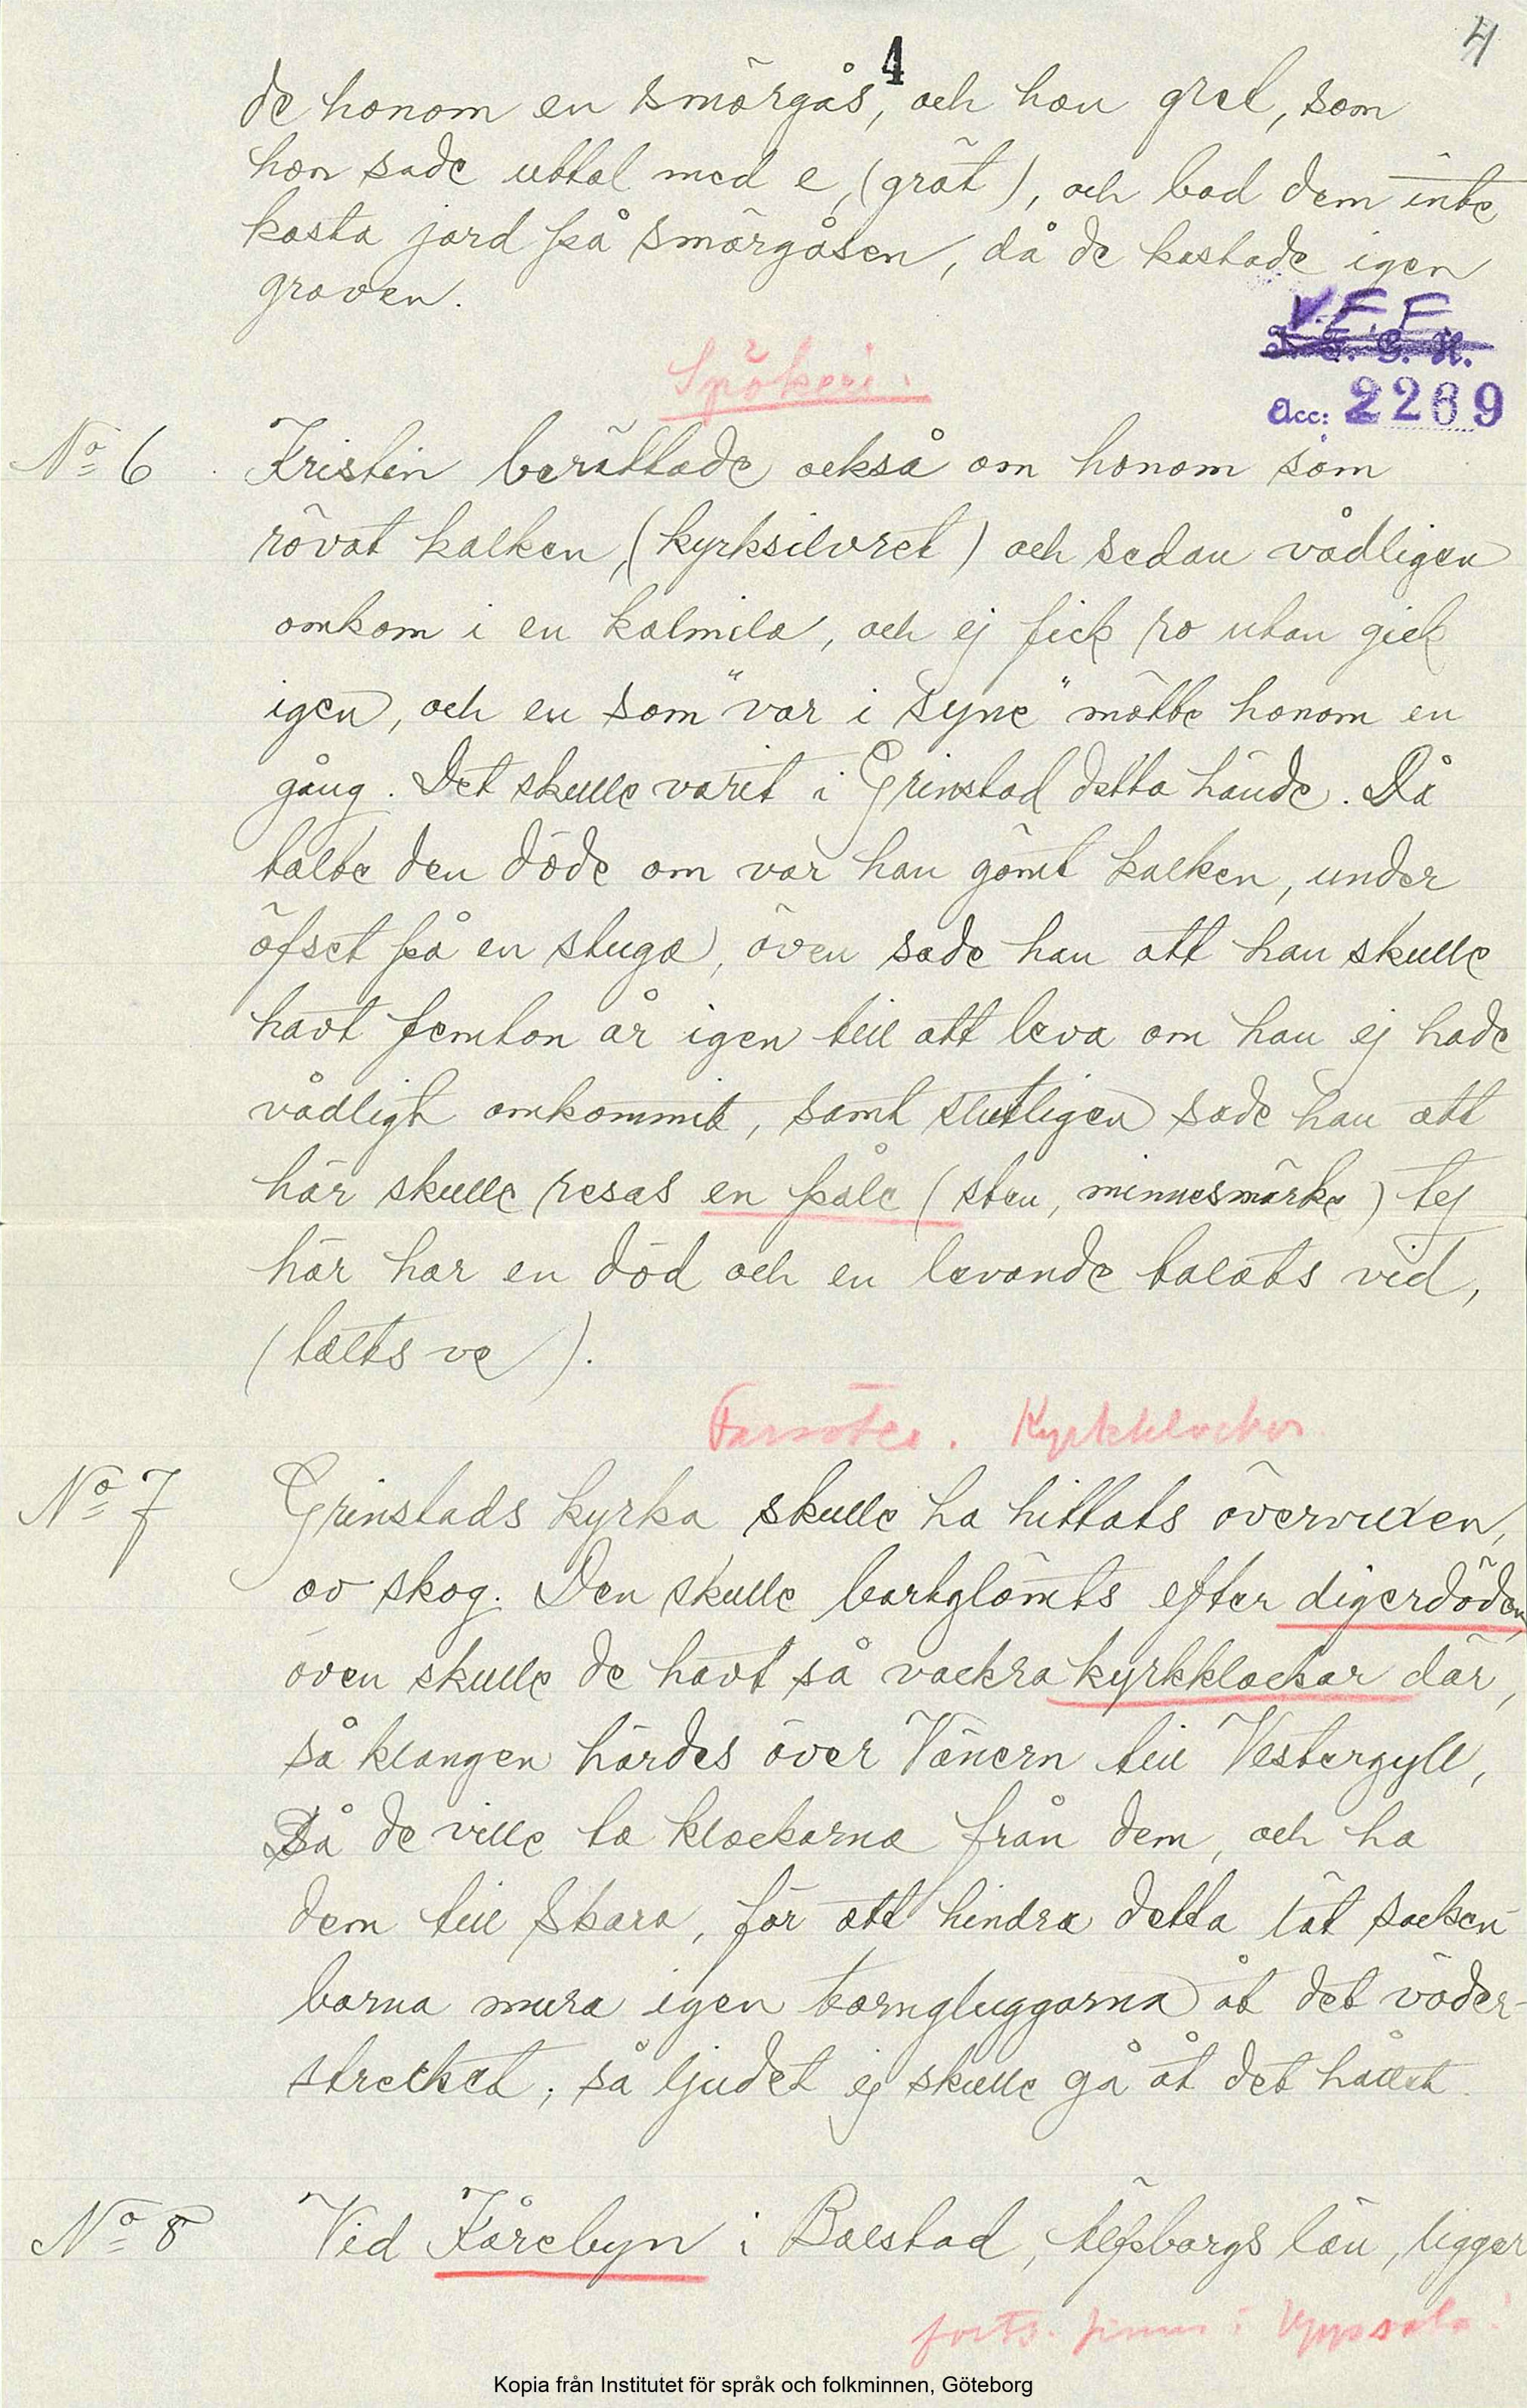 4
4
de honom en smörgås, och hon gret, som
hon sade uttal med e, (grät), och bad dem inte
kasta jord på smörgåsen, då de kastade igen
graven.
V.F.F.
I. F. G. H.
Acc: 2269
Spökeri.
No 6 Kristin berättade också om honom som
rövat kalken, (kyrksilvret) och sedan vådligen
omkom i en kolmila, och ej fick ro utan gick
igen, och en som "var i syne" mötte honom en
gång. Det skulle varit i Grinstad detta hände. Då
talte den döde om var han gömt kalken, under
öfset på en stuga, även sade han att han skulle
havt femton år igen till att leva om han ej hade
vådligt omkommit, samt slutligen sade han att
här skulle resas en påle (sten, minnesmärke) tej
här har en död och en levande talats vid,
(talts ve).
Farsoter. Kyrkklockor
No 7 Grinstads kyrka skulle ha hittats övervuxen,
av skog. Den skulle bortglömts efter digerdöden,
även skulle de havt så vackra kyrkklockor där,
så klangen hördes över Vänern till Vestergyll,
Då de ville ta klockorna från dem, och ha
dem till Skara, för att hindra detta lät socken-
borna mura igen torngluggarna åt det väder-
strecket; så ljudet ej skulle gå åt det hållet.
No 8 Vid Kårebyn i Bolstad, Älfsborgs län, ligger
forts. finns i Uppsala!
Kopia från Institutet för språk och folkminnen, Göteborg